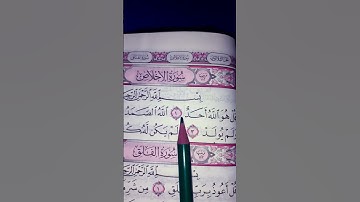 سُورَةُ الإِخْلَاصِ
بِسْمِ اللَّهِ الرَّحْمَٰنِ الرَّحِ
قُلْ هُوَ اللَّهُ أَحَدٌ ١ اللَّهُ الصَّمَدُ
وَلَمْ يُولَدْ ٣ وَلَمْ يَكُن لَّهُ
سُورَةُ الْفَلَقِ
بِسْمِ اللَّهِ الرَّحْمَٰنِ الرَّحِ
قُلْ أَعُوذُ بِرَبِّ الْفَلَقِ ١ مِن شَرِّ